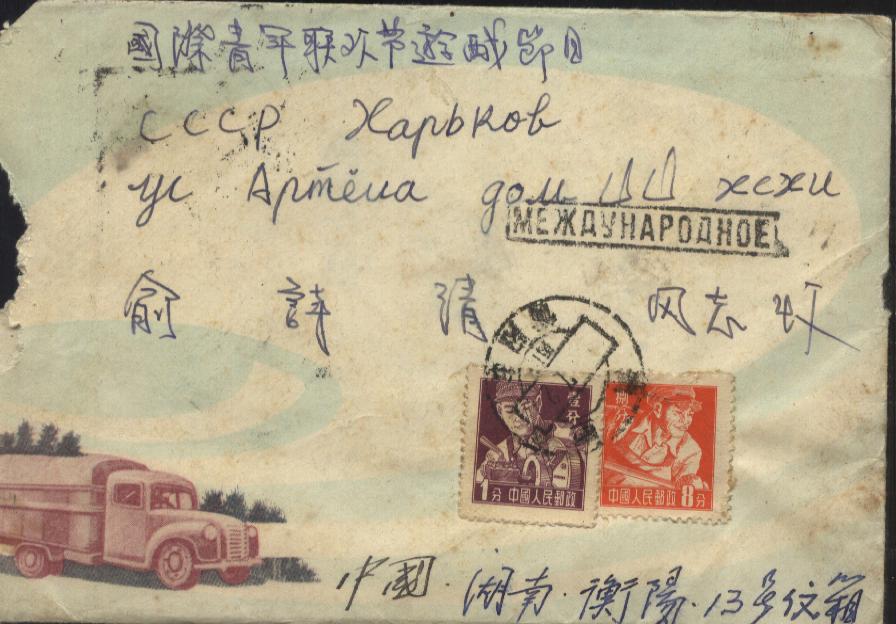 國際青年联欢节遊戯節目
СССР Харьков
ус Артёма дом
МЕЖДУНАРОДНОЕ
俞 詩 清 同志 收
壹分
1分 中國人民郵政
捌分
中國人民郵政 8分
中國. 湖南. 衡陽. 13号仪箱